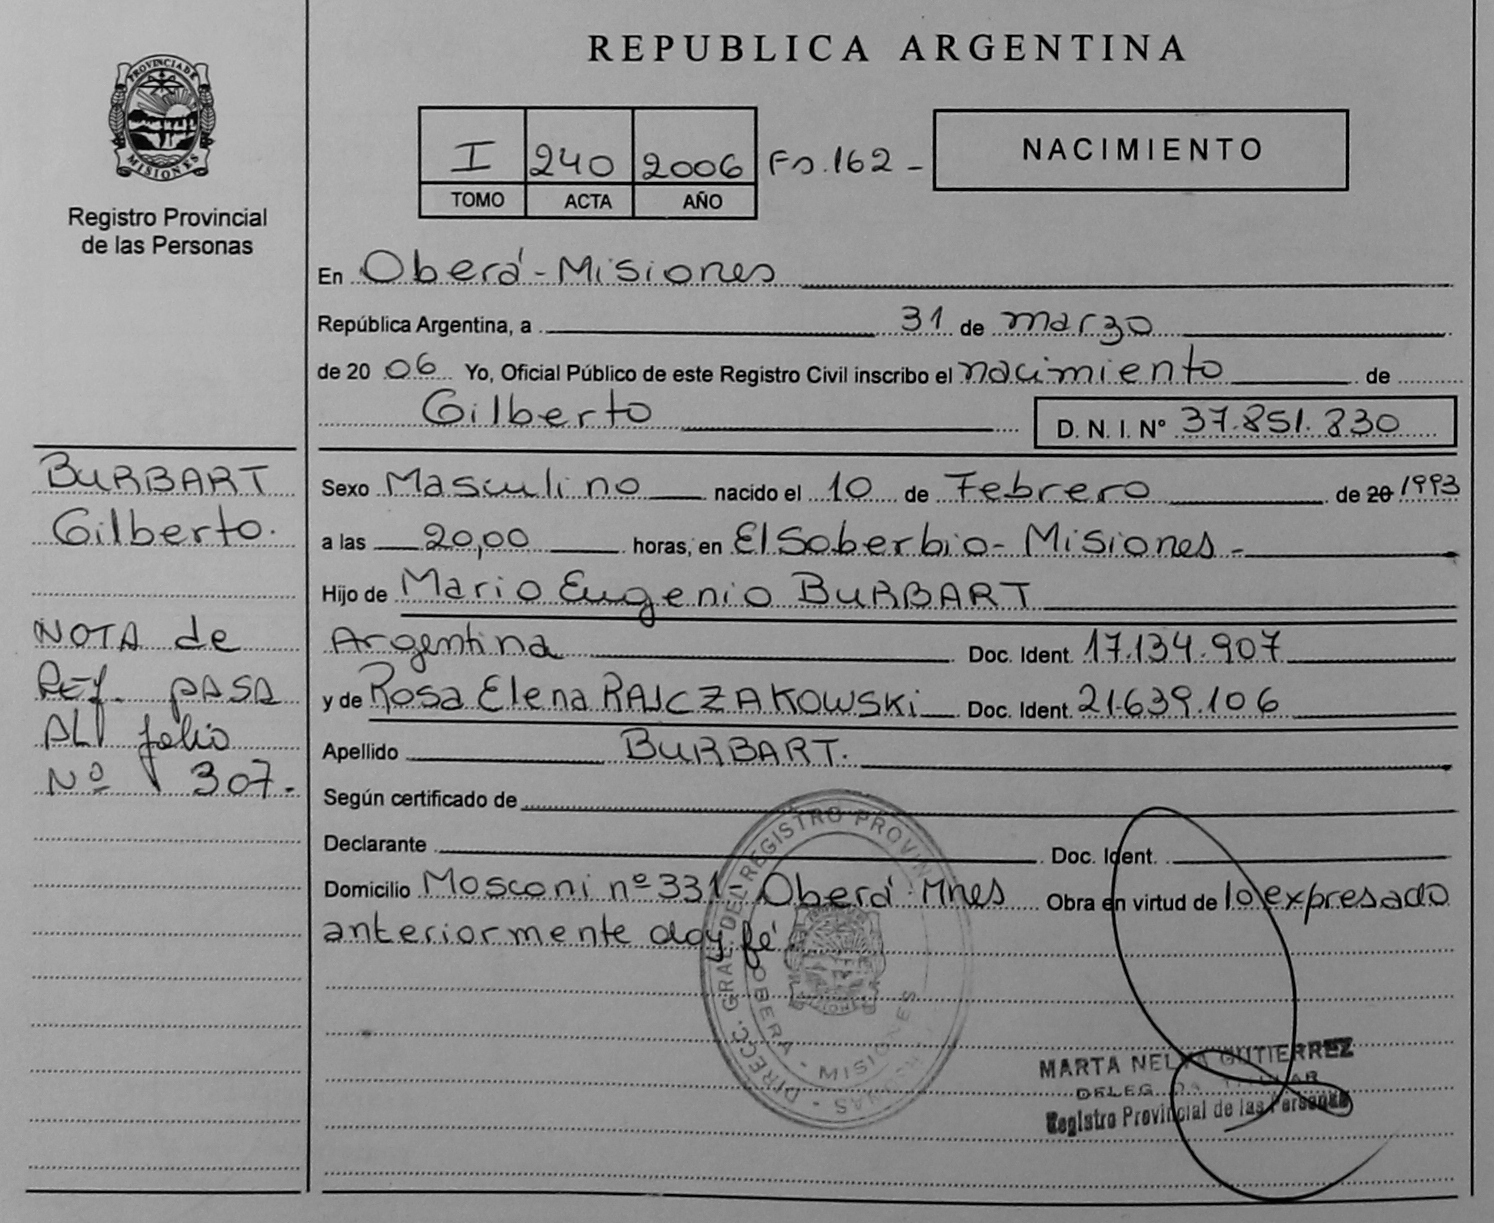 REPUBLICA ARGENTINA
PROVINCIA DE
MISIONES
Registro Provincial
de las Personas
I 240 2006 Fs.162-
TOMO ACTA AÑO
NACIMIENTO
En Oberá-Misiones
República Argentina, a 31 de marzo
de 20 06 Yo, Oficial Público de este Registro Civil inscribo el nacimiento de
Gilberto D. N. I. N° 37.851.830
BURBART
Gilberto.
NOTA de
Ref. PASA
AL folio
Nº 307.-
Sexo Masculino nacido el 10 de Febrero de 20 1993
a las 20,00 horas, en El Soberbio- Misiones-
Hijo de Mario Eugenio BURBART
Argentina Doc. Ident. 17.134.907
y de Rosa Elena RAJCZAKOWSKi Doc. Ident. 21.639.106
Apellido BURBART.
Según certificado de
Declarante Doc. Ident.
Domicilio Mosconi nº 331- Oberá Mnes Obra en virtud de lo expresado
anteriormente doy fé
DIRECC. GRAL DEL REGISTRO PROVIN
OBERA - MISIONES
MARTA NELIA GUTIERREZ
DELEGADA TITULAR
Registro Provincial de las Personas